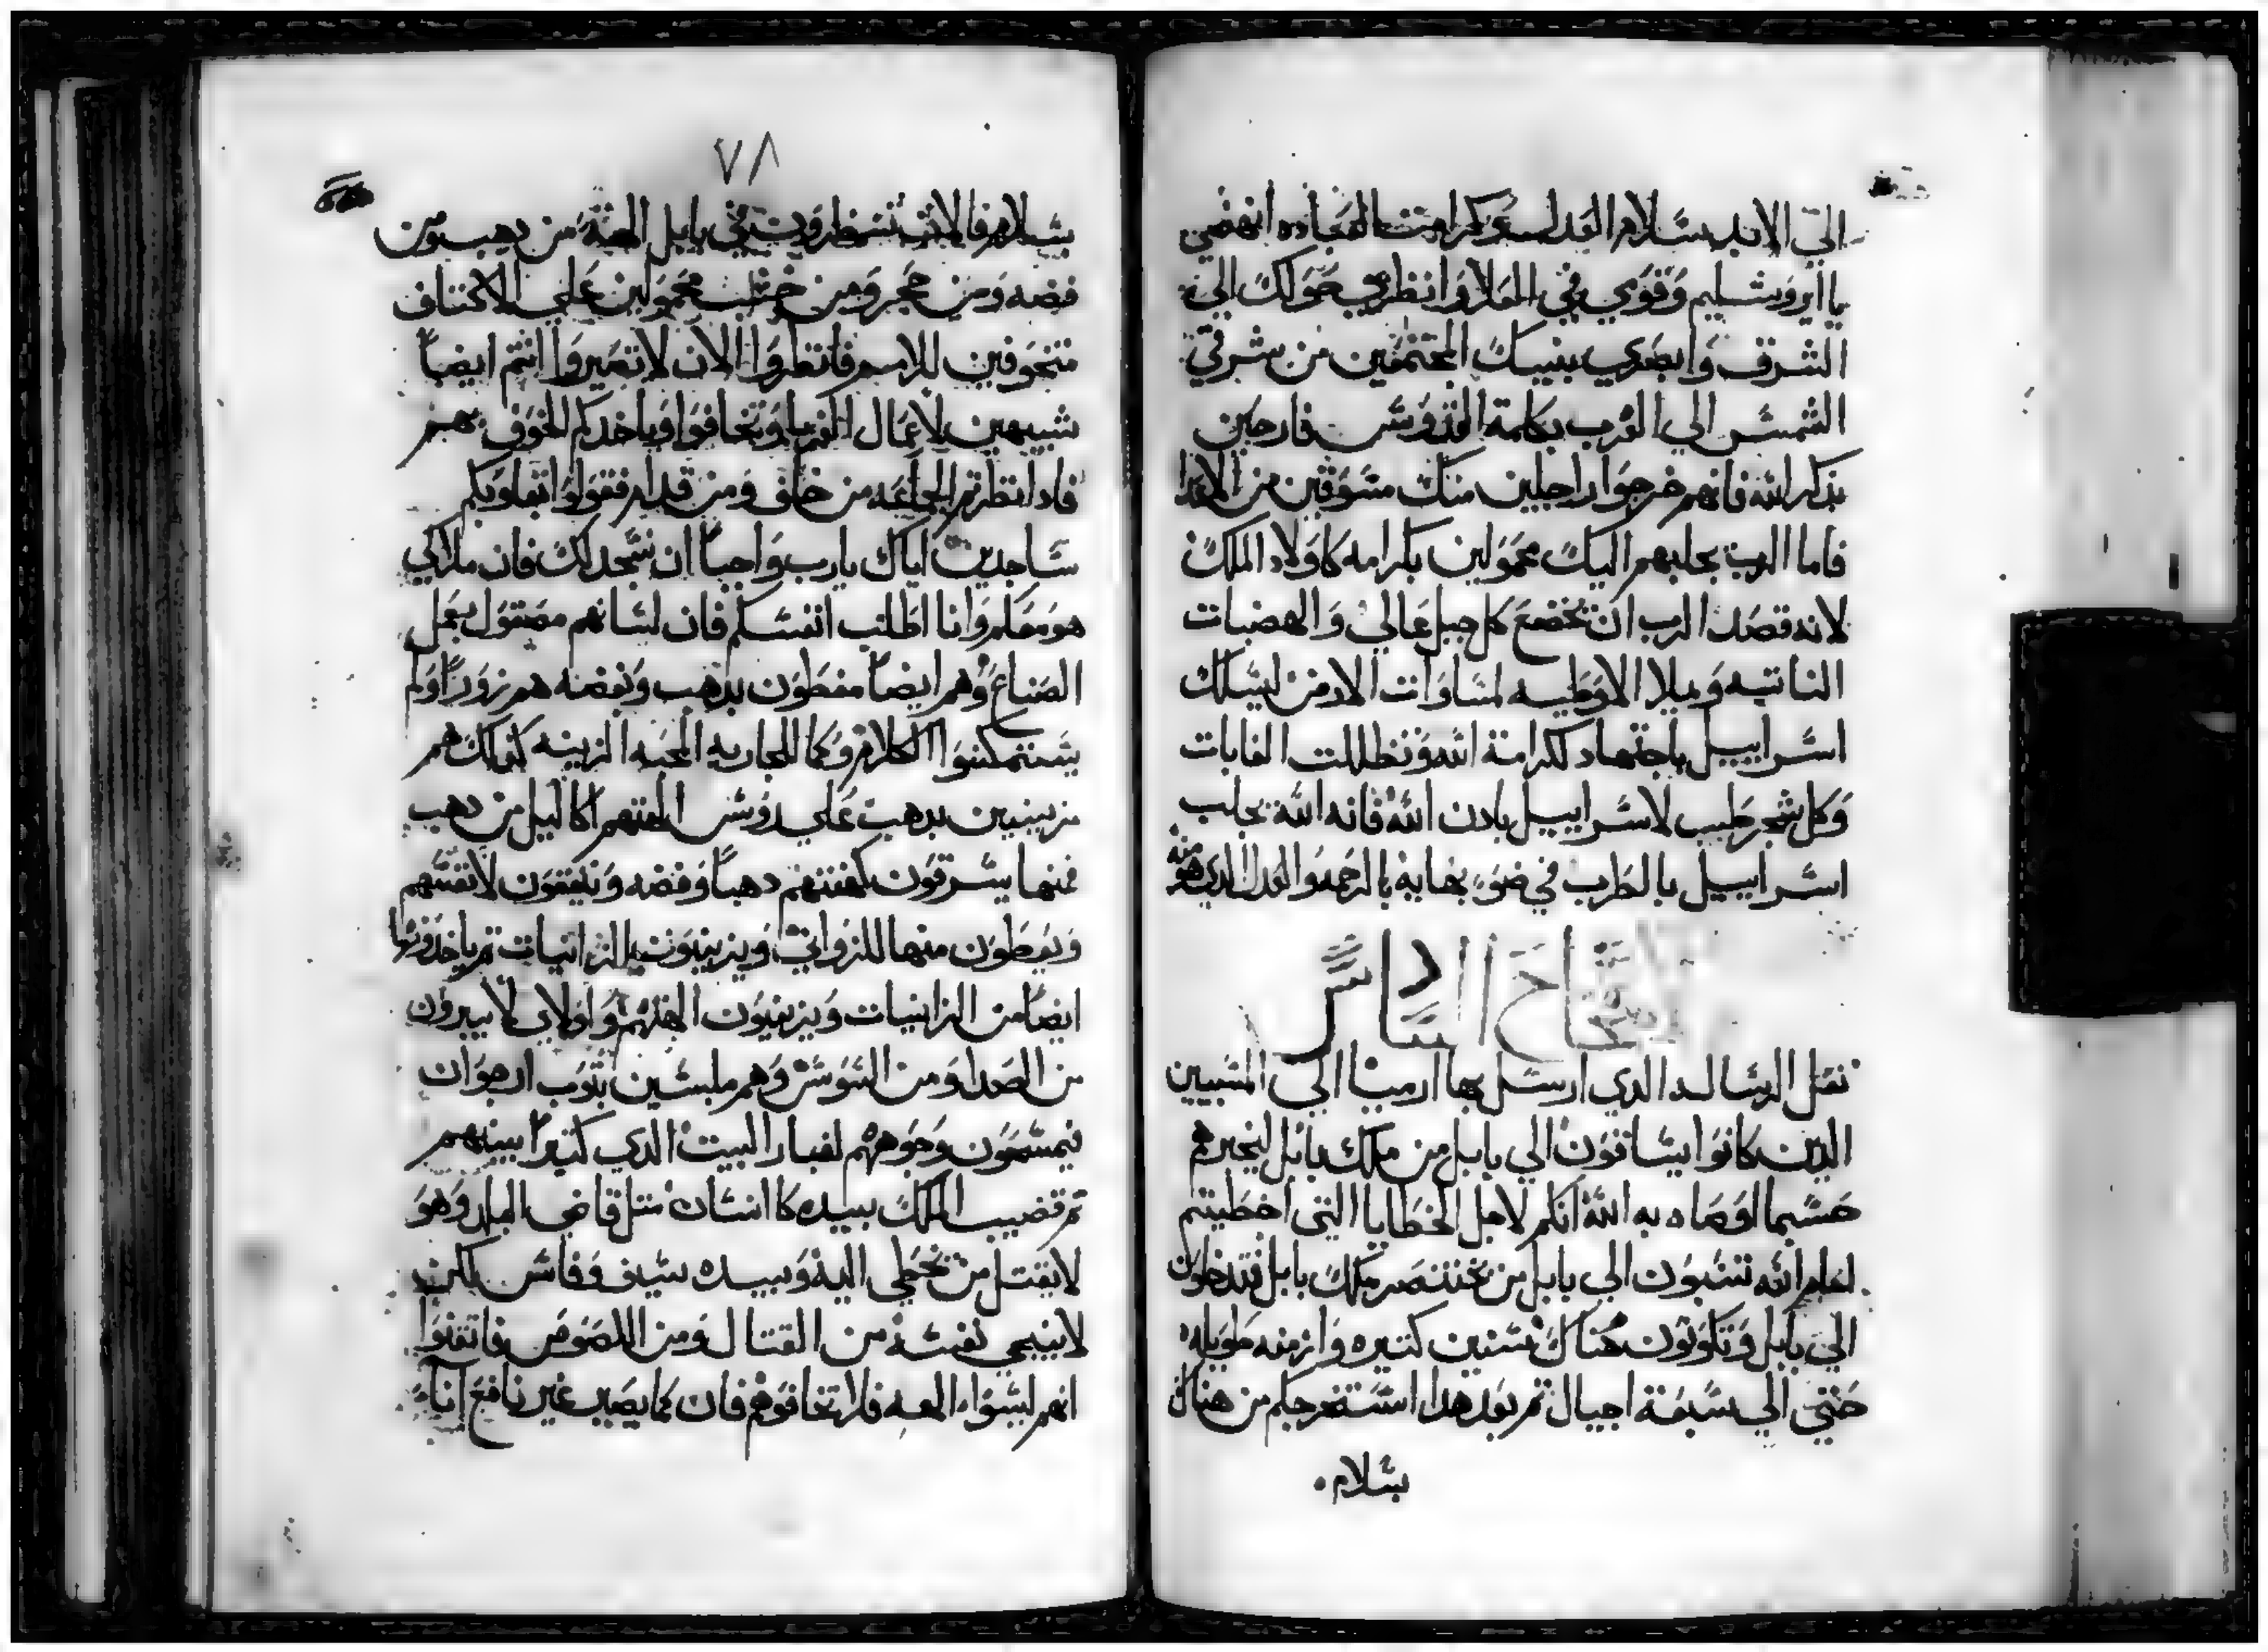 الي الابد سلام العدل وكرامت العباده انهضي
يا ايروشليم وقوي في العلا وانظري حولك الي
الشرق وابصري بنيك المجتمعين من مشرق
الشمس الي الغرب بكلمة القدوس فارحين
بذكر الله فانهم خرجوا راجلين منك مسوقين من الاعدا
فاما الرب يجلبهم اليك محمولين بكرامه كاولاد الملك
لانه قصد الرب ان يخضع كل جبل عالي والهضبات
الناتيه ويملا الاوطيه لمساوات الارض ليسلك
اسراييل باجتهاد لكرامة الله وتظللت الغابات
وكل شجر طيب لاسراييل بادن الله فانه الله يجلب
اسراييل بالطرب في ضوء بهايه بالرحمه والعدل الدي هو منه
الاصحاح السادس
نقل الرساله الدي ارسل بها ارميا الي المسبيين
الدين كانوا يساقون الي بابل من ملك بابل ليخبرهم
حسبما اوصاه به الله انكم لاجل الخطايا التي اخطيتم
امام الله تسبون الي بابل من بختنصر ملك بابل فتدخلون
الي بابل وتكونون هناك سنين كتيره وازمنه طويله
حتي الي سبعة اجيال تم بعد هدا استخرجكم من هناك
بسلام
٧٨
بسلام فالان تنظرون في بابل الهة من دهب ومن
فضه ومن حجر ومن خشب محمولين علي الاكتاف
متخوفين للامم فانظروا الان لا تصيروا انتم ايضاً
شبيهين لاعمال الغربا وتخافوا وياخدكم الخوف بهم
فادا نظرتم الجماعه من خلف ومن قدام فقولوا بقلوبكم
ساجدين اياك يارب واجباً ان نسجد لك فان ملاكي
هو معكم وانا اطلب انفسكم فان لسانهم مصقول بعمل
الصناع وهم ايضاً مغطون بدهب وبفضه هم زوراً ولم
يستمكنوا الكلام وكما للجاريه المحبه الزينه كدلك هم
مزينين بدهب علي روس الهتهم اكاليل من دهب
فمنها يسرقون كهنتهم دهباً وفضه وينفقون لانفسهم
ويعطون منها للزواني ويزينون الزانيات تم ياخدونها
ايضاً من الزانيات ويزينون الهتهم واولاي لا يبرون
من الصدا ومن السوس وهم ملبسين بتوب ارجوان
فيمسحون وجوههم لغبار البيت الدي كتيراً بينهم
تم قضيب الملك بيده كانسان متل قاضي البلد وهو
لا يقتل من تخطي اليه وبيده سيف وفاس لكن
لا ينجي نفسه من القتال ومن اللصوص فاتقنوا
انهم ليسوا الهه فلا تخافوهم فان كما يصير غير نافع اناء